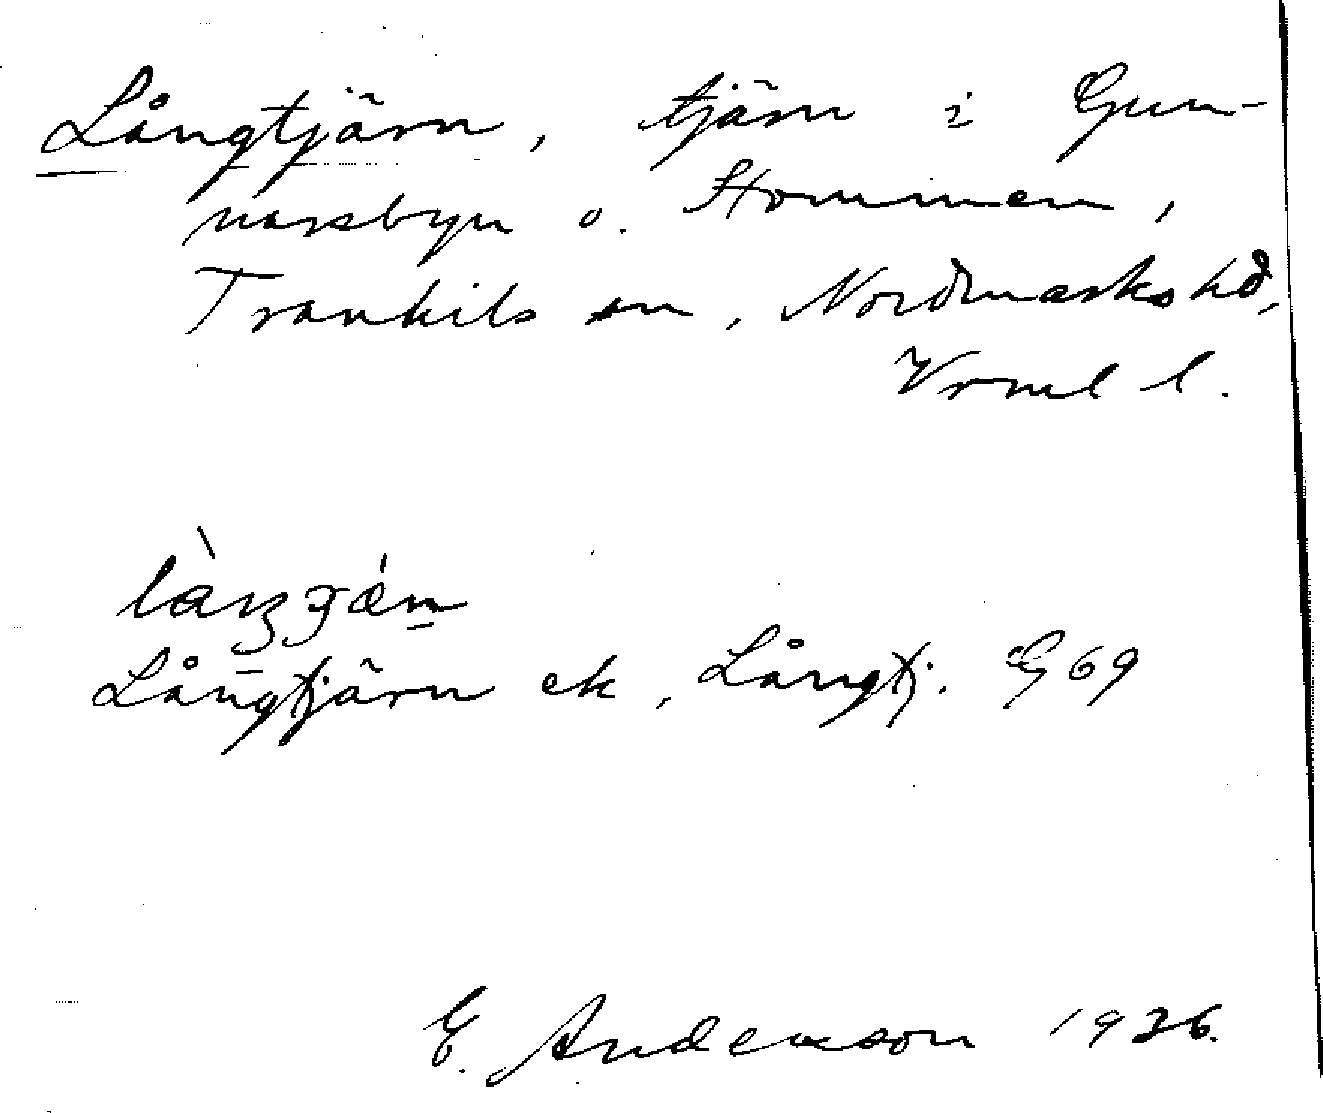 Långtjärn, tjärn i Gun-
narsbyn o. Hommen,
Trankils sn, Nordmarks hd,
Vrml l.
Långtjärn ek, Långtj. G 69
E. Andersson 1936.